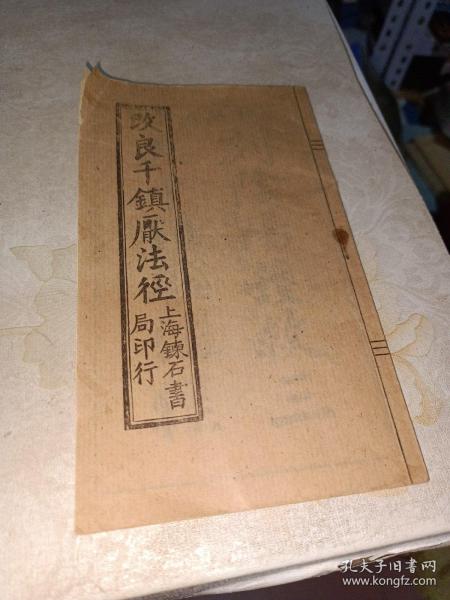 改良千鎮厭法徑
上海鍊石書
局印行
孔夫子旧书网
www.kongfz.com